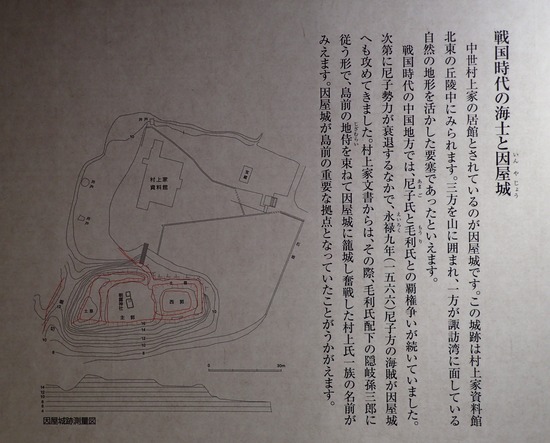 戦国時代の海士と因屋城
いんやじょう
中世村上家の居館とされているのが因屋城です。この城跡は村上家資料館
北東の丘陵中にみられます。三方を山に囲まれ、一方が諏訪湾に面している
自然の地形を活かした要塞であったといえます。
戦国時代の中国地方では、尼子氏と毛利氏との覇権争いが続いていました。
あまご
もうり
次第に尼子勢力が衰退するなかで、永禄九年(一五六六)尼子方の海賊が因屋城
えいろく
へも攻めてきました。村上家文書からは、その際、毛利氏配下の隠岐孫三郎に
従う形で、島前の地侍を束ねて因屋城に籠城し奮戦した村上氏一族の名前が
じざむらい
みえます。因屋城が島前の重要な拠点となっていたことがうかがえます。
村上家
資料館
主郭
西郭
因屋城跡測量図